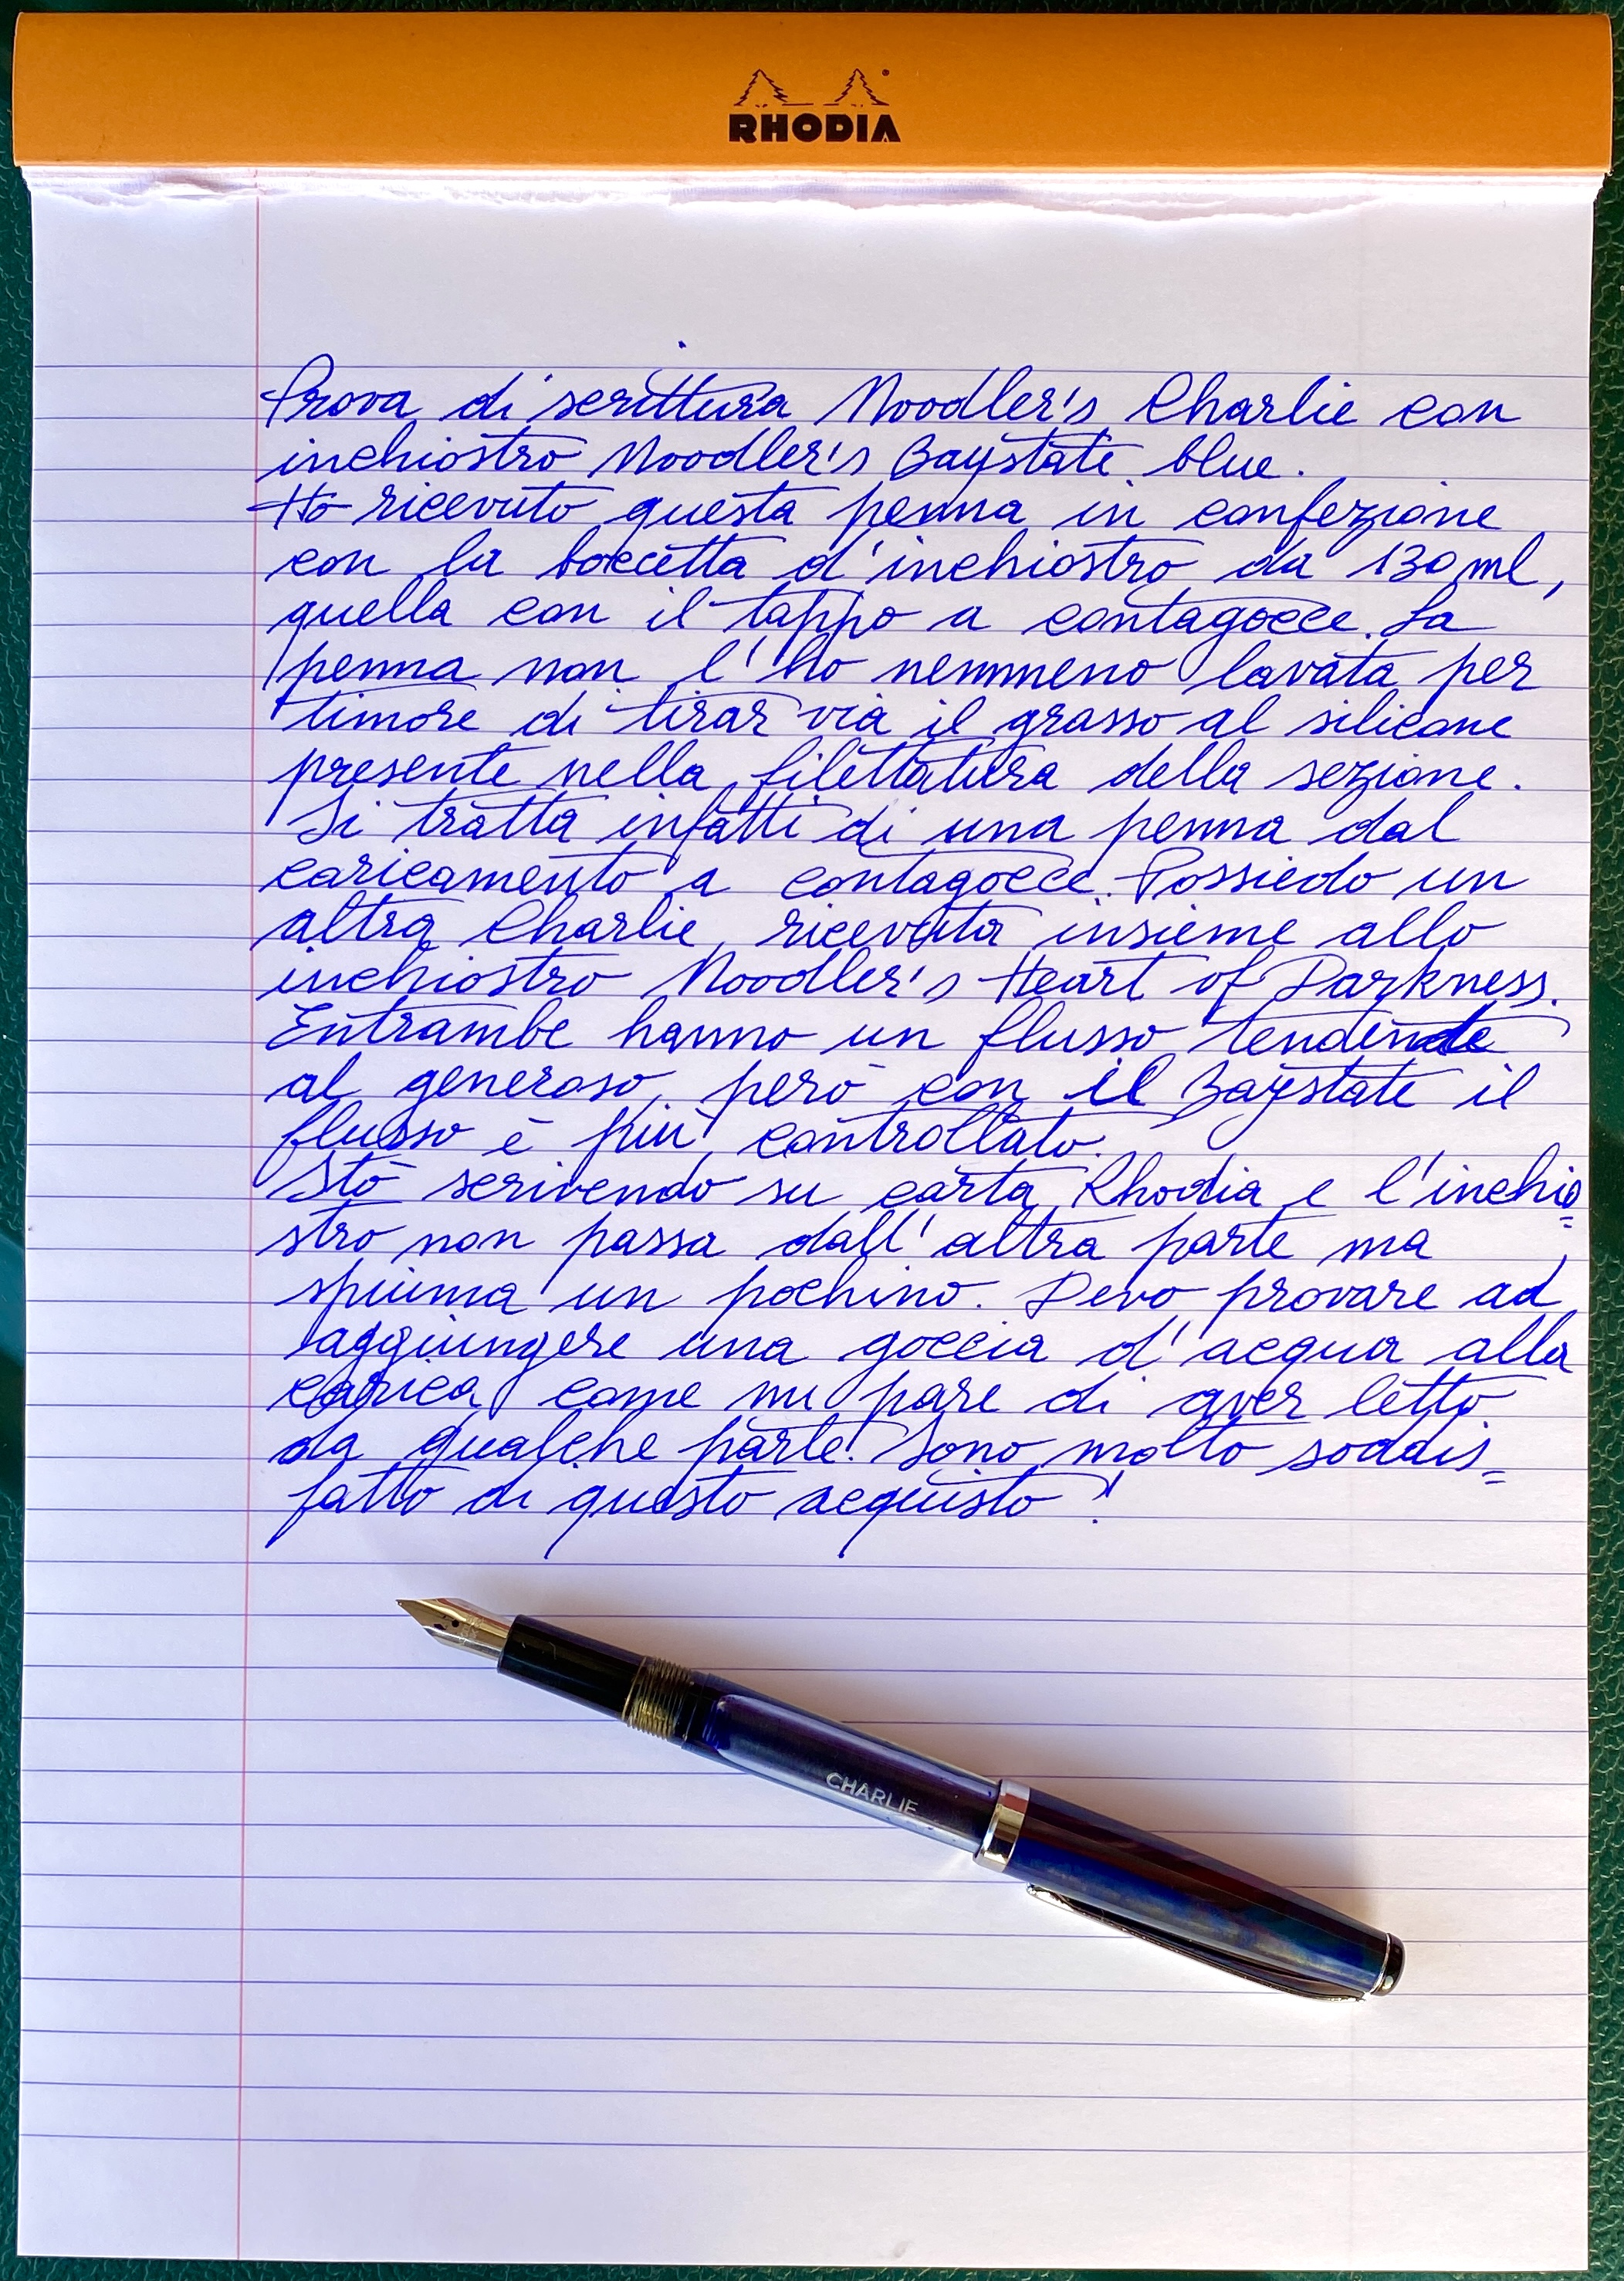 RHODIA
Prova di scrittura Noodler's Charlie con
inchiostro Noodler's Baystate blue.
Ho ricevuto questa penna in confezione
con la boccetta d'inchiostro da 130 ml,
quella con il tappo a contagocce. La
penna non l'ho nemmeno lavata per
timore di tirar via il grasso al silicone
presente nella filettatura della sezione.
Si tratta infatti di una penna dal
caricamento a contagocce. Possiedo un
altra Charlie, ricevuta insieme allo
inchiostro Noodler's Heart of Darkness.
Entrambe hanno un flusso tendente
al generoso, però con il Baystate il
flusso è più controllato.
Stò scrivendo su carta Rhodia e l'inchio=
stro non passa dall'altra parte ma
spiuma un pochino. Devo provare ad
aggiungere una goccia d'acqua alla
carica, come mi pare di aver letto
da qualche parte. Sono molto soddis=
fatto di questo acquisto!
CHARLIE